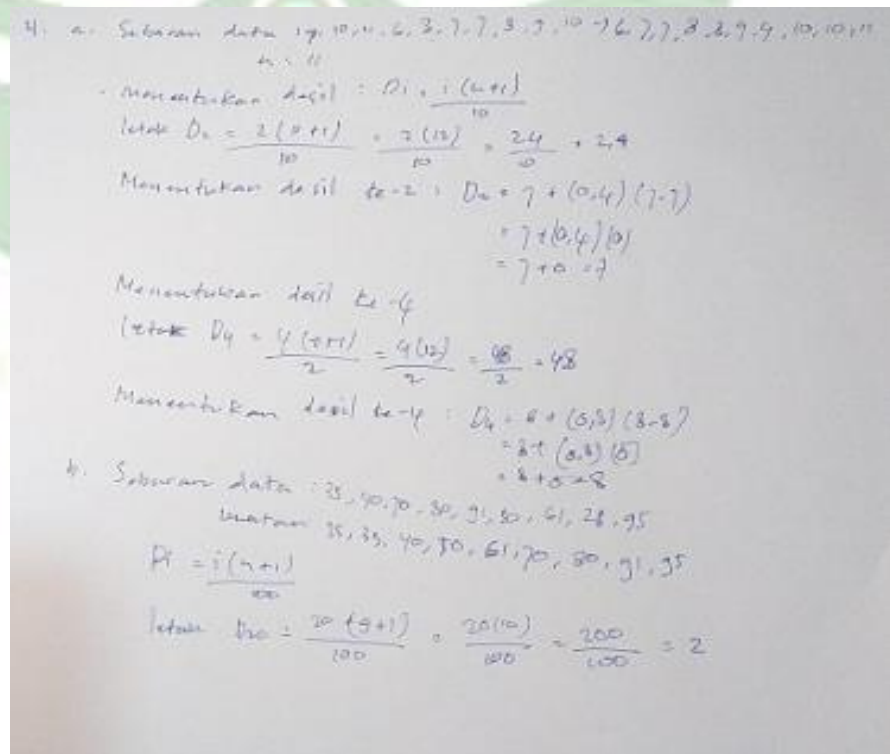 4. a. Sebaran data 9, 10, 11, 6, 8, 7, 7, 8, 9, 10 → 6, 7, 7, 8, 8, 9, 9, 10, 10, 11
n = 11
- Menentukan desil : Di = i(n+1) / 10
letak D2 = 2(11+1) / 10 = 2(12) / 10 = 24 / 10 = 2,4
Menentukan desil ke-2 : D2 = 7 + (0,4)(7-7)
= 7 + (0,4)(0)
= 7 + 0 = 7
Menentukan desil ke-4
letak D4 = 4(11+1) / 2 = 4(12) / 2 = 48 / 2 = 48
Menentukan desil ke-4 : D4 = 8 + (0,8)(8-8)
= 8 + (0,8)(0)
= 8 + 0 = 8
b. Sebaran data : 35, 40, 70, 80, 91, 50, 61, 28, 95
urutan 35, 35, 40, 50, 61, 70, 80, 91, 95
Pi = i(n+1) / 100
letak P20 = 20(9+1) / 100 = 20(10) / 100 = 200 / 100 = 2